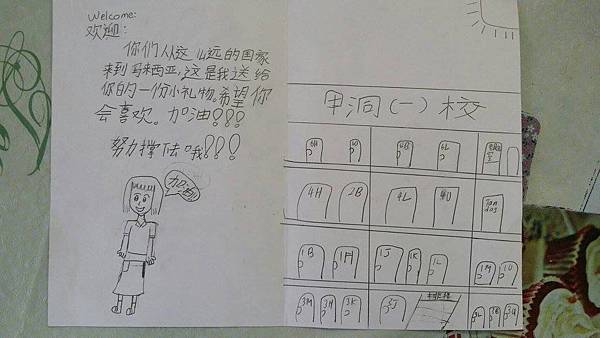 Welcome:
欢迎:
你们从这么远的国家
来到马来西亚,这是我送给
你的一份小礼物。希望你
会喜欢。加油!!!
努力撑住哦!!!
加油!
甲洞(一)校
4H 2B 4L 4U
Tandas
1B 1H 1J 1K 1L 1M 1U
3M 3H 3K 3J 楼梯 3L 3B 3U